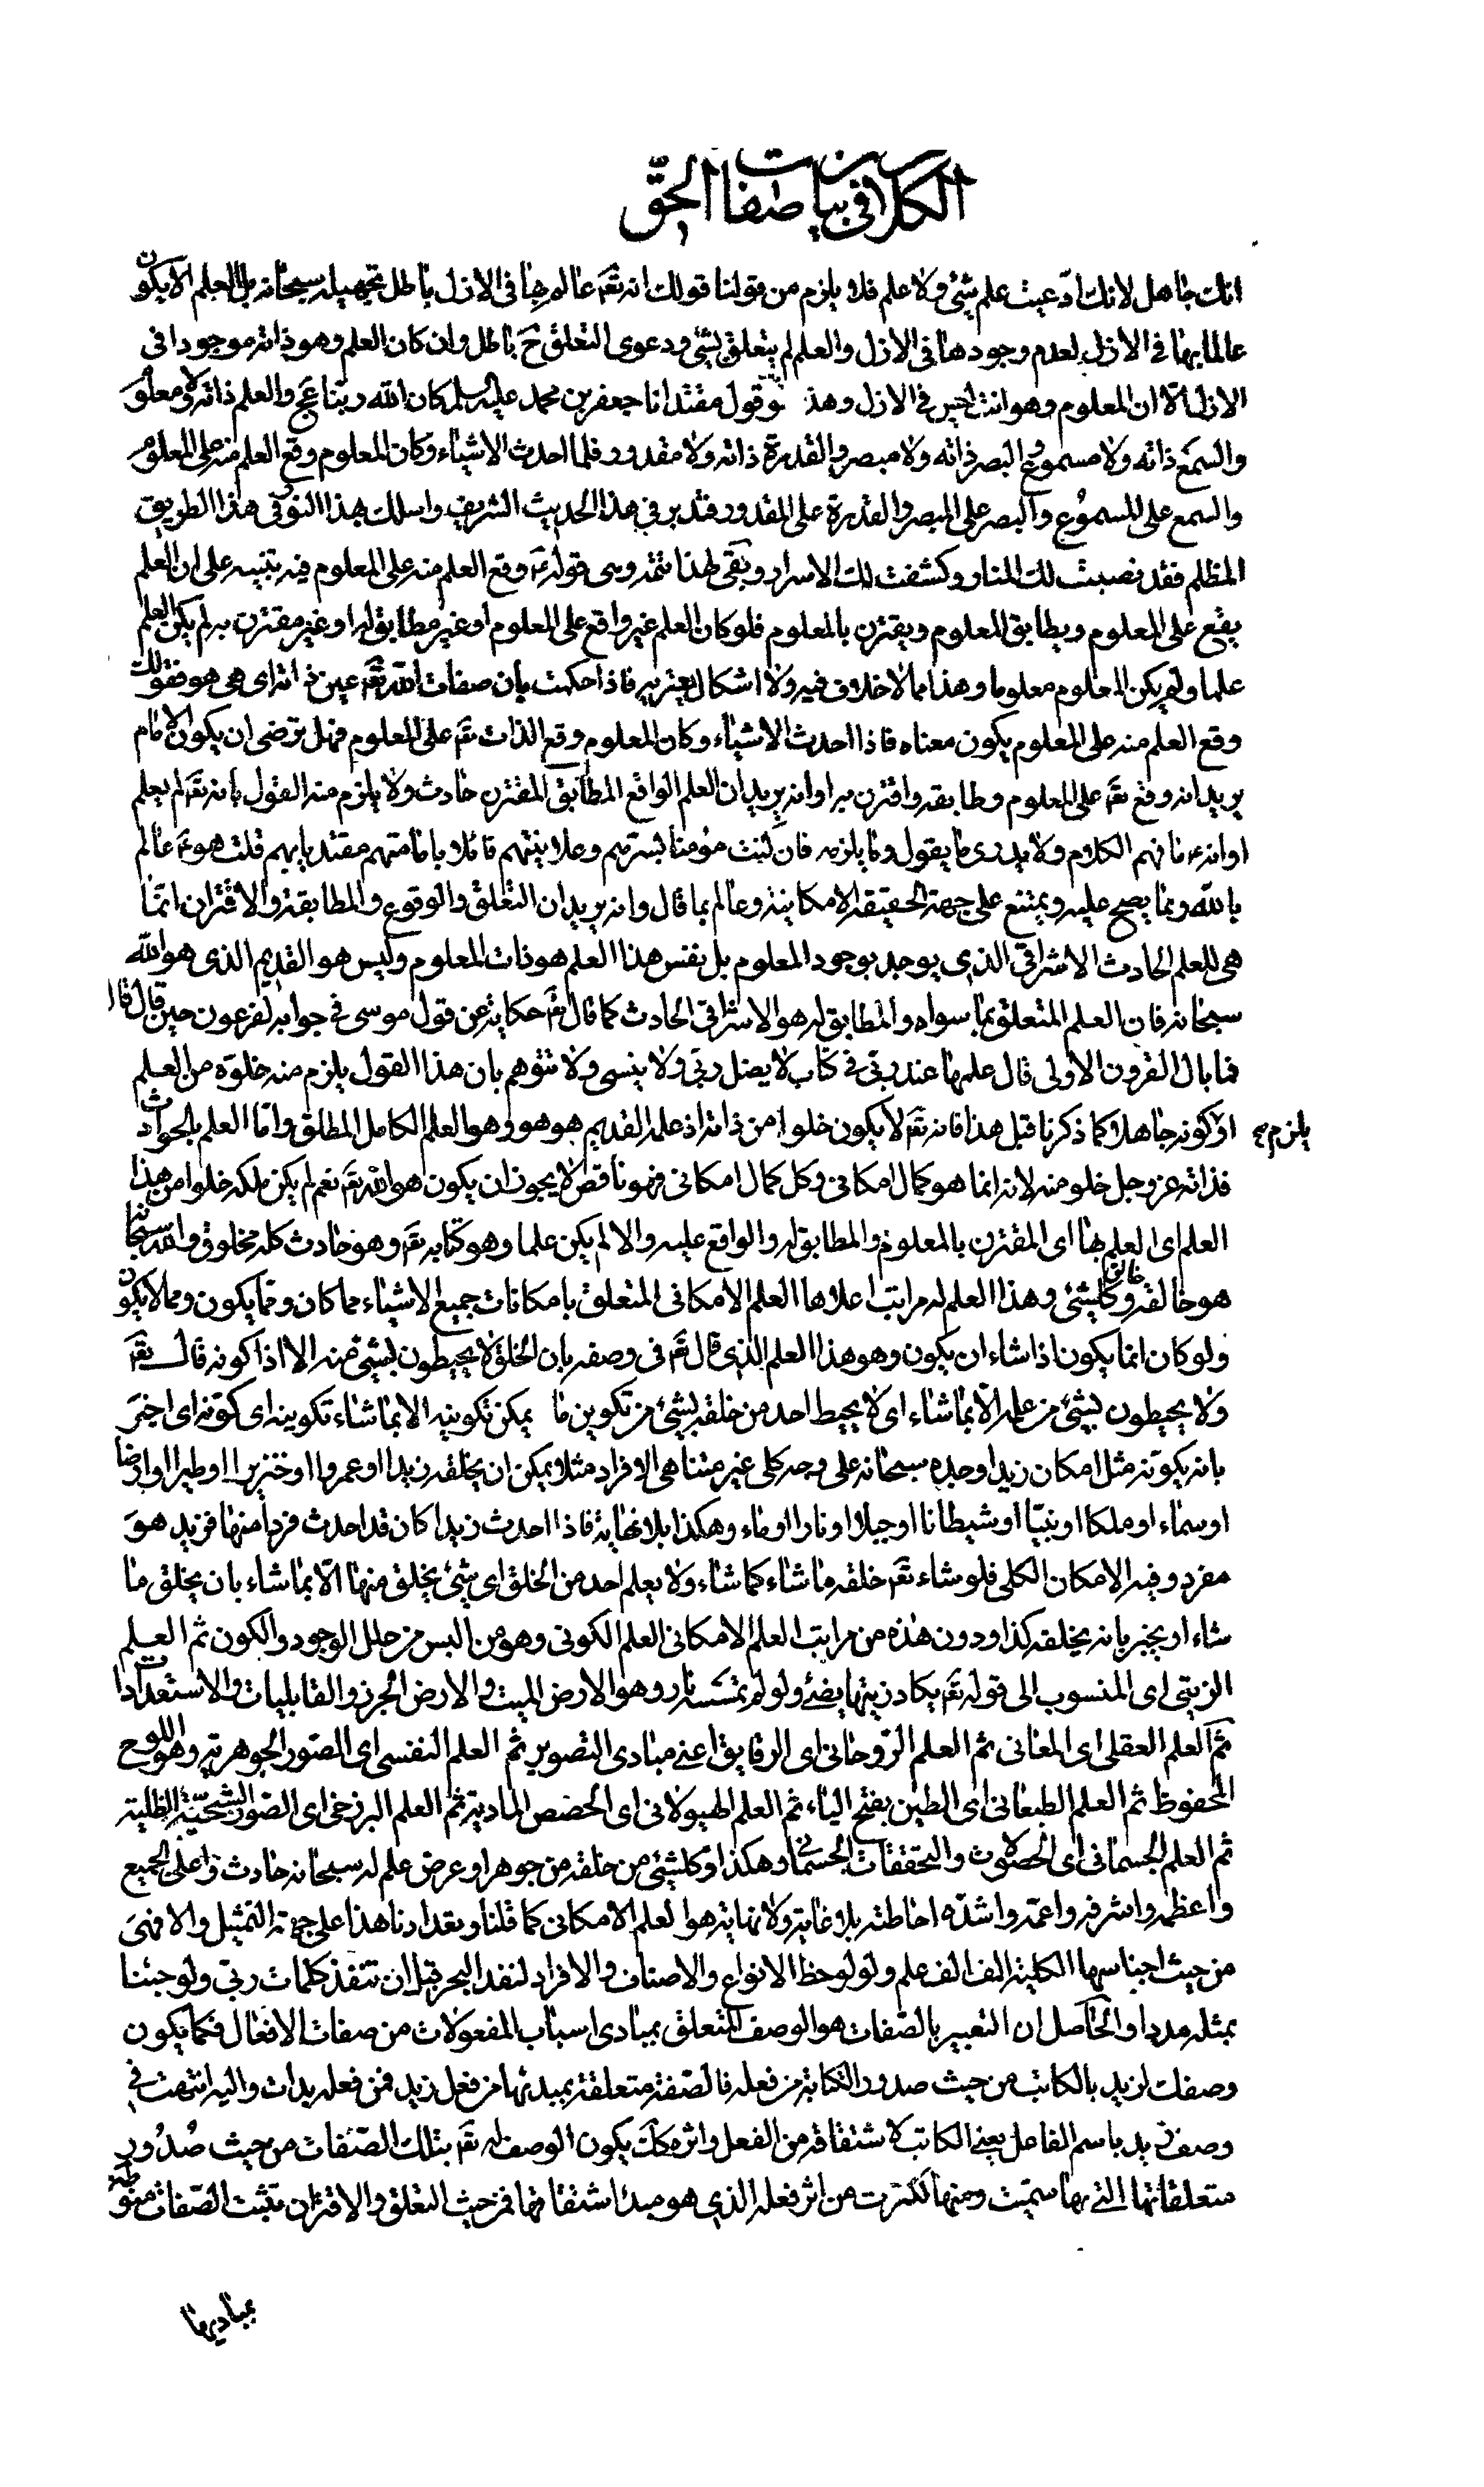 الكلام في بيان صفات الحق
انك جاهل لانك ادعيت علم شئ ولا علم فلا يلزم من قولنا قولك انه تعَ عالم بها في الازل باطل تجهيله سبحانه بل العلم الا يكون
عالما بها في الازل لعدم وجودها في الازل والعلم لم يتعلق بشئ ودعوى التعلق حَ باطل وان كان العلم وهو ذاته موجودا في
الازل الّا ان المعلوم وهو انت ليس في الازل وهذا قول مقتدانا جعفر بن محمد عليه سلم كان الله ربنا عج والعلم ذاته ولا معلوم
والسمع ذاته ولا مسموع والبصر ذاته ولا مبصر والقدرة ذاته ولا مقدور فلما احدث الاشياء وكان المعلوم وقع العلم منه على المعلوم
والسمع على المسموع والبصر على المبصر والقدرة على المقدور فتدبر في هذا الحديث الشريف واسلك بهذا النور في هذا الطريق
المظلم فقد نصبت لك المنار وكشفت لك الاسرار وبقى لهذا تتمة وهى قوله عَ وقع العلم منه على المعلوم فيه تنبيه على ان العلم
يقع على المعلوم ويطابق المعلوم ويقترن بالمعلوم فلو كان العلم غير واقع على المعلوم او غير مطابق له او غير مقترن به لم يكن العلم
علما ولم يكن المعلوم معلوما وهذا مما لا خلاف فيه ولا اشكال يعتريه فاذا حكمت بان صفات الله تعَ عين ذاته اى هى هو فقولك
وقع العلم منه على المعلوم يكون معناه فاذا احدث الاشياء وكان المعلوم وقع الذات تعَ على المعلوم فهل ترضى ان يكون الامام
يريد انه وقع تعَ على المعلوم وطابقه واقترن به او انه يريد ان العلم الواقع المطابق المقترن حادث ولا يلزم منه القول بانه تعَ لم يعلم
او انه عَ ما فهم الكلام ولا يدرى ما يقول وما يلزمه فان كنت مؤمنا بسرّهم وعلانيتهم قائلا بامامتهم مقتديا بهم قلت هو عَ عالم
بالله وبما يصح عليه ويمتنع على جهة الحقيقة الامكانية وعالم بما قال وانه يريد ان التعلق والوقوع والمطابقة والاقتران انّما
هى للعلم الحادث الاشراقى الذى يوجد بوجود المعلوم بل نفس هذا العلم هو ذات المعلوم وليس هو القديم الذى هو الله
سبحانه فان العلم المتعلق بما سواه والمطابق له هو الاشراقى الحادث كما قال تعَ حكاية عن قول موسى في جوابه لفرعون حين قال قال
فما بال القرون الاولى قال علمها عند ربّى في كتاب لا يضل ربّى ولا ينسى ولا تتوهم بان هذا القول يلزم منه خلوّه من العلم
او كونه جاهلا كما ذكرنا قبل هذا فانه تعَ لا يكون خلوا من ذاته اذ علمه القديم هو هو وهو العلم الكامل المطلق وامّا العلم بالحوادث
يلزم
فذاته عز وجل خلو منه لانه انما هو كمال امكانى وكل كمال امكانى فهو ناقص لا يجوز ان يكون هو الله تعَ نعم لم يكن ملكه خلوا من هذا
العلم اى العلم بها اى المقترن بالمعلوم والمطابق له والواقع عليه والا لم يكن علما وهو كتابه تعَ وهو حادث كله مخلوق والله سبحانه
هو خالقه وخالق كل شئ وهذا العلم له مراتب اعلاها العلم الامكانى المتعلق بامكانات جميع الاشياء مما كان وما يكون ومما لا يكون
ولو كان انما يكون اذا شاء ان يكون وهو هذا العلم الذى قال تعَ في وصفه بان الخلق لا يحيطون بشئ منه الا اذا كونه قال تعَ
ولا يحيطون بشئ من علمه الّا بما شاء اى لا يحيط احد من خلقه بشئ من تكوين ما يمكن تكوينه الا بما شاء تكوينه اى كوّنه اى اخبر
بانه يكوّنه مثل امكان زيد اوجده سبحانه على وجه كلى غير متناهى الافراد مثلا يمكن ان يخلقه زيدا او عمروا او خنزيرا او طيرا او ارضا
او سماء او ملكا او نبيّا او شيطانا او جبلا او نارا او ماء وهكذا بلا نهاية فاذا احدث زيدا كان قد احدث فردا منها فزيد هو
مفرد وفيه الامكان الكلى فلو شاء تعَ خلقه ما شاء كما شاء ولا يعلم احد من الخلق اى شئ يخلق منها الّا بما شاء بان يخلق ما
شاء او يخبر بانه يخلقه كذا ودون هذه من مراتب العلم الامكانى العلم الكونى وهو من البس من حلل الوجود والكون ثم العلم
الزيتى اى المنسوب الى قوله تعَ يكاد زيتها يضئ ولو لم تمسسه نار وهو الارض الميت والارض الجرز والقابليات والاستعدادات
ثم العلم العقلى اى المعانى ثم العلم الرّوحانى اى الرقايق اعنى مبادى التصوير ثم العلم النفسى اى الصّور الجوهرية وهو اللوح
المحفوظ ثم العلم الطبعانى اى الطين بفتح الياء ثم العلم الهيولانى اى الحصص المادية ثم العلم البرزخى اى الصّور الشبحيّة الظلية
ثم العلم الجسمانى اى الحصولات والتحققات الجسمانى وهكذا وكل شئ من خلقه من جوهر او عرض علم له سبحانه حادث واعلى الجميع
واعظمه واشرفه واعمّه واشدّه احاطة بلا غاية ولا نهاية هو العلم الامكانى كما قلنا وتعدادنا هذا على جهة التمثيل والا فهى
من حيث اجناسها الكلية الف الف علم ولو لوحظ الانواع والاصناف والافراد لنفد البحر قبل ان تنفد كلمات ربّى ولو جئنا
بمثله مددا والحاصل ان التعبير بالصّفات هو الوصف المتعلق بمبادى اسباب المفعولات من صفات الافعال فكما يكون
وصفك لزيد بالكاتب من حيث صدور الكتابة من فعله فالصّفة متعلقة بمبدئها من فعل زيد فمن فعله بدات واليه انتهت في
وصف زيد باسم الفاعل يعنى الكاتب لاشتقاقه من الفعل واثره كك يكون الوصف له تعَ بتلك الصّفات من حيث صُدُور
متعلقاتها التى بها سمّيت ومنها تكثرت من اثر فعله الذى هو مبدا اشتقاقها فمن حيث التعلق والاقتران تثبت الصّفات منوطة
بمباديها